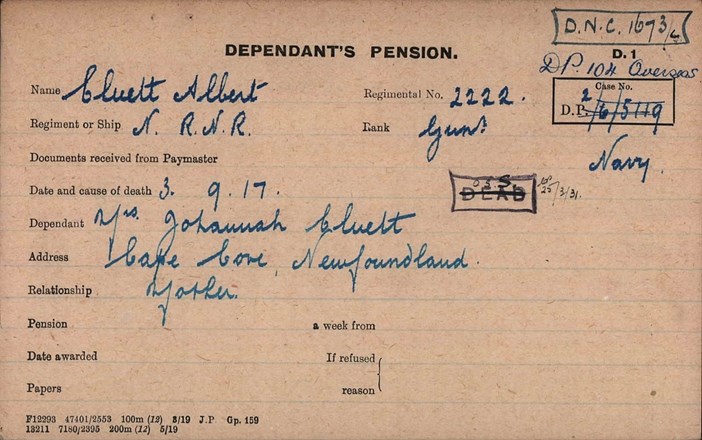 D.N.C. 1673/L
DEPENDANT'S PENSION.
D. 1
DP. 104 Overseas
Name Cluett Albert Regimental No. 2222.
Case No.
D.P. 2/6/5119
Regiment or Ship N. R.N.R. Rank Gunr
Navy.
Documents received from Paymaster
Date and cause of death 3. 9. 17.
DEAD
25/3/31.
Dependant Mrs. Johannah Cluett
Address Cape Cove, Newfoundland.
Relationship Mother.
Pension a week from
Date awarded If refused
Papers reason
F12293 47401/2553 100m (12) 3/19 J.P Gp. 159
13211 7180/2395 200m (12) 5/19